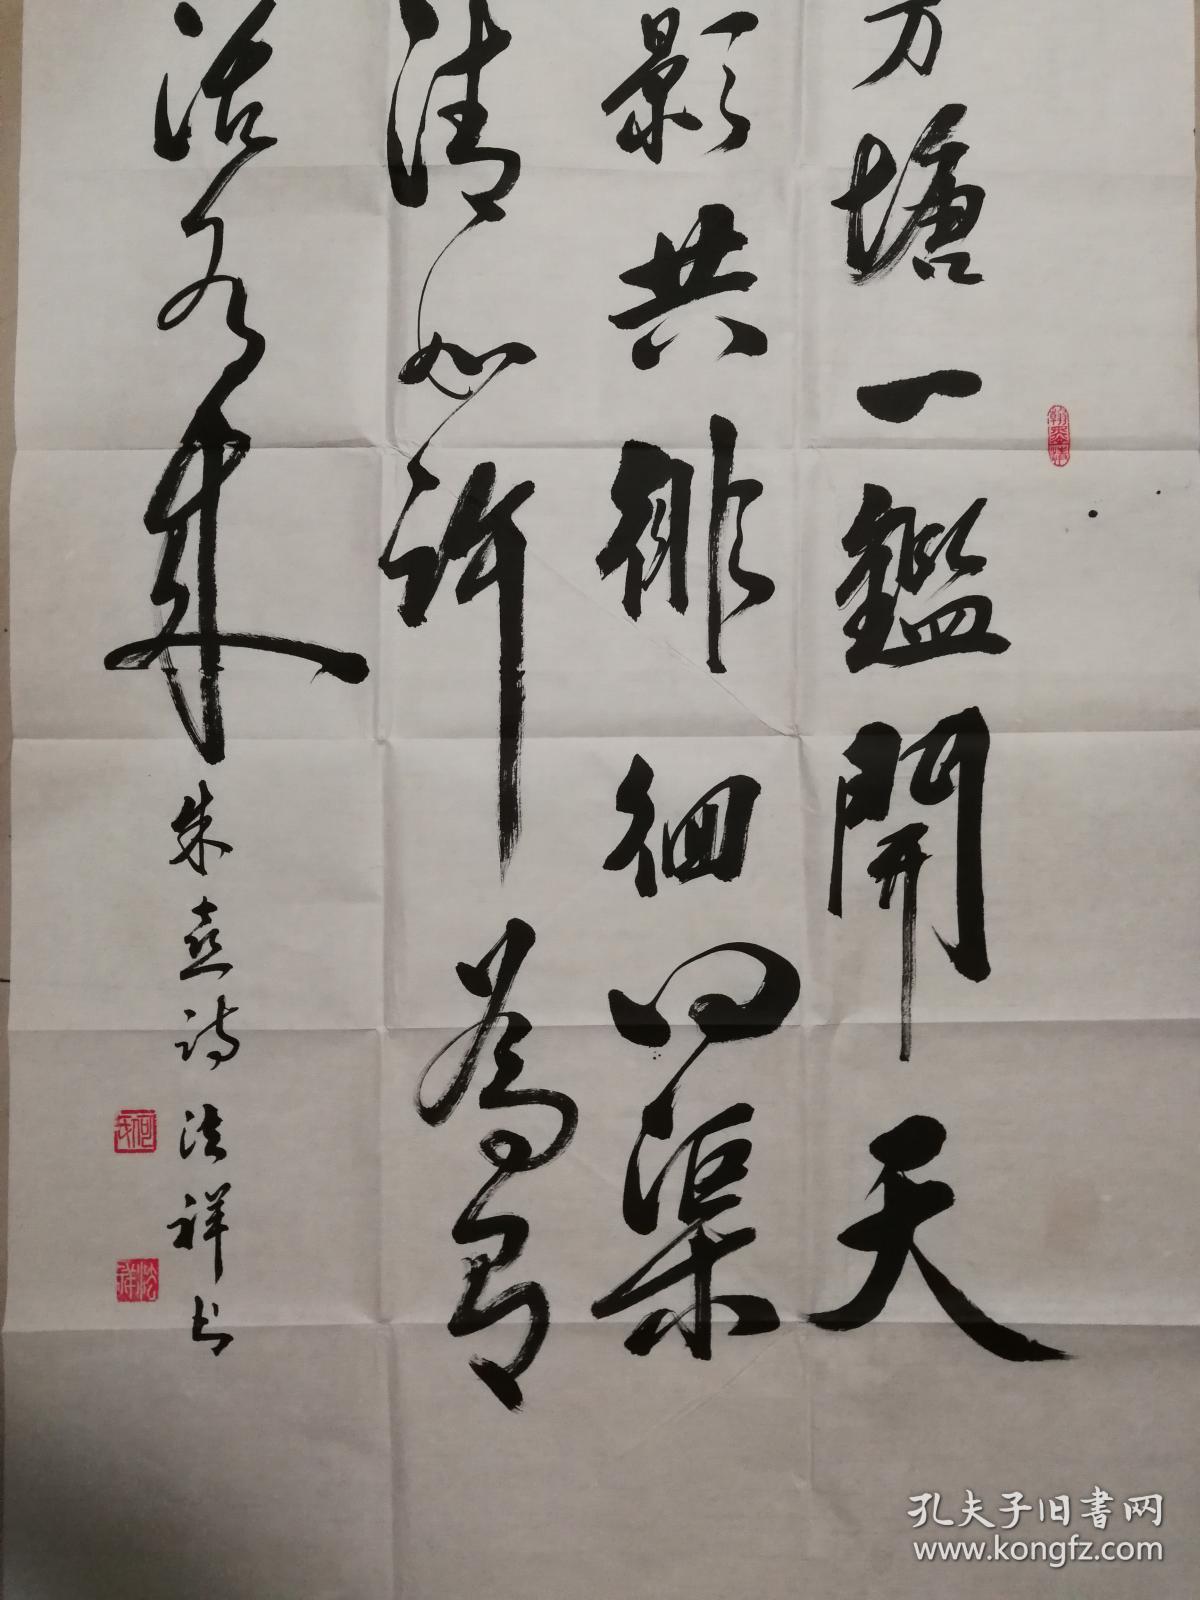 方塘一鑑開天
影共徘徊问渠
清如许為有
活水来
朱熹诗 法祥书
孔夫子旧書网
www.kongfz.com